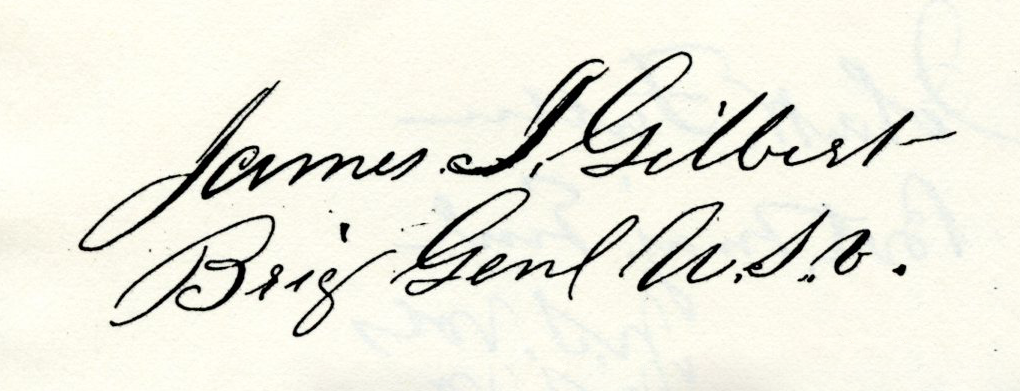 James I. Gilbert
Brig Genl U.S.V.